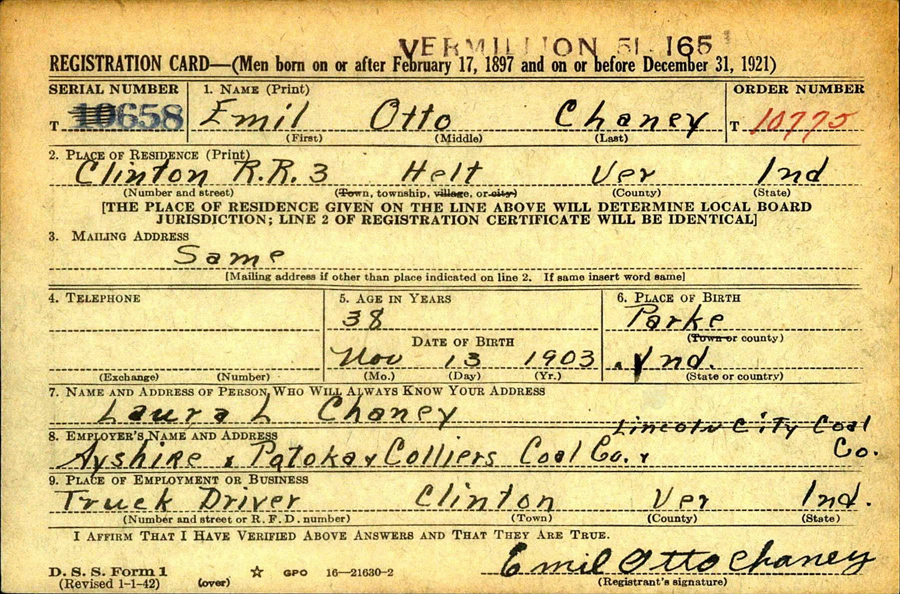 VERMILLION 51 165
REGISTRATION CARD—(Men born on or after February 17, 1897 and on or before December 31, 1921)
SERIAL NUMBER
T 10658
1. NAME (Print)
Emil Otto Chaney
(First) (Middle) (Last)
ORDER NUMBER
T 10775
2. PLACE OF RESIDENCE (Print)
Clinton R.R. 3 Helt Ver Ind
(Number and street) (Town, township, village, or city) (County) (State)
[THE PLACE OF RESIDENCE GIVEN ON THE LINE ABOVE WILL DETERMINE LOCAL BOARD
JURISDICTION; LINE 2 OF REGISTRATION CERTIFICATE WILL BE IDENTICAL]
3. MAILING ADDRESS
Same
[Mailing address if other than place indicated on line 2. If same insert word same]
4. TELEPHONE
(Exchange) (Number)
5. AGE IN YEARS
38
DATE OF BIRTH
Nov 13 1903
(Mo.) (Day) (Yr.)
6. PLACE OF BIRTH
Parke
(Town or county)
Ind.
(State or country)
7. NAME AND ADDRESS OF PERSON WHO WILL ALWAYS KNOW YOUR ADDRESS
Laura L Chaney
8. EMPLOYER'S NAME AND ADDRESS
Lincoln City Coal
Ayshire & Patoka & Colliers Coal Co. & Co.
9. PLACE OF EMPLOYMENT OR BUSINESS
Truck Driver Clinton Ver Ind.
(Number and street or R. F. D. number) (Town) (County) (State)
I AFFIRM THAT I HAVE VERIFIED ABOVE ANSWERS AND THAT THEY ARE TRUE.
Emil Otto Chaney
(Registrant's signature)
D. S. S. Form 1
(Revised 1-1-42) (over) ☆ GPO 16—21630-2